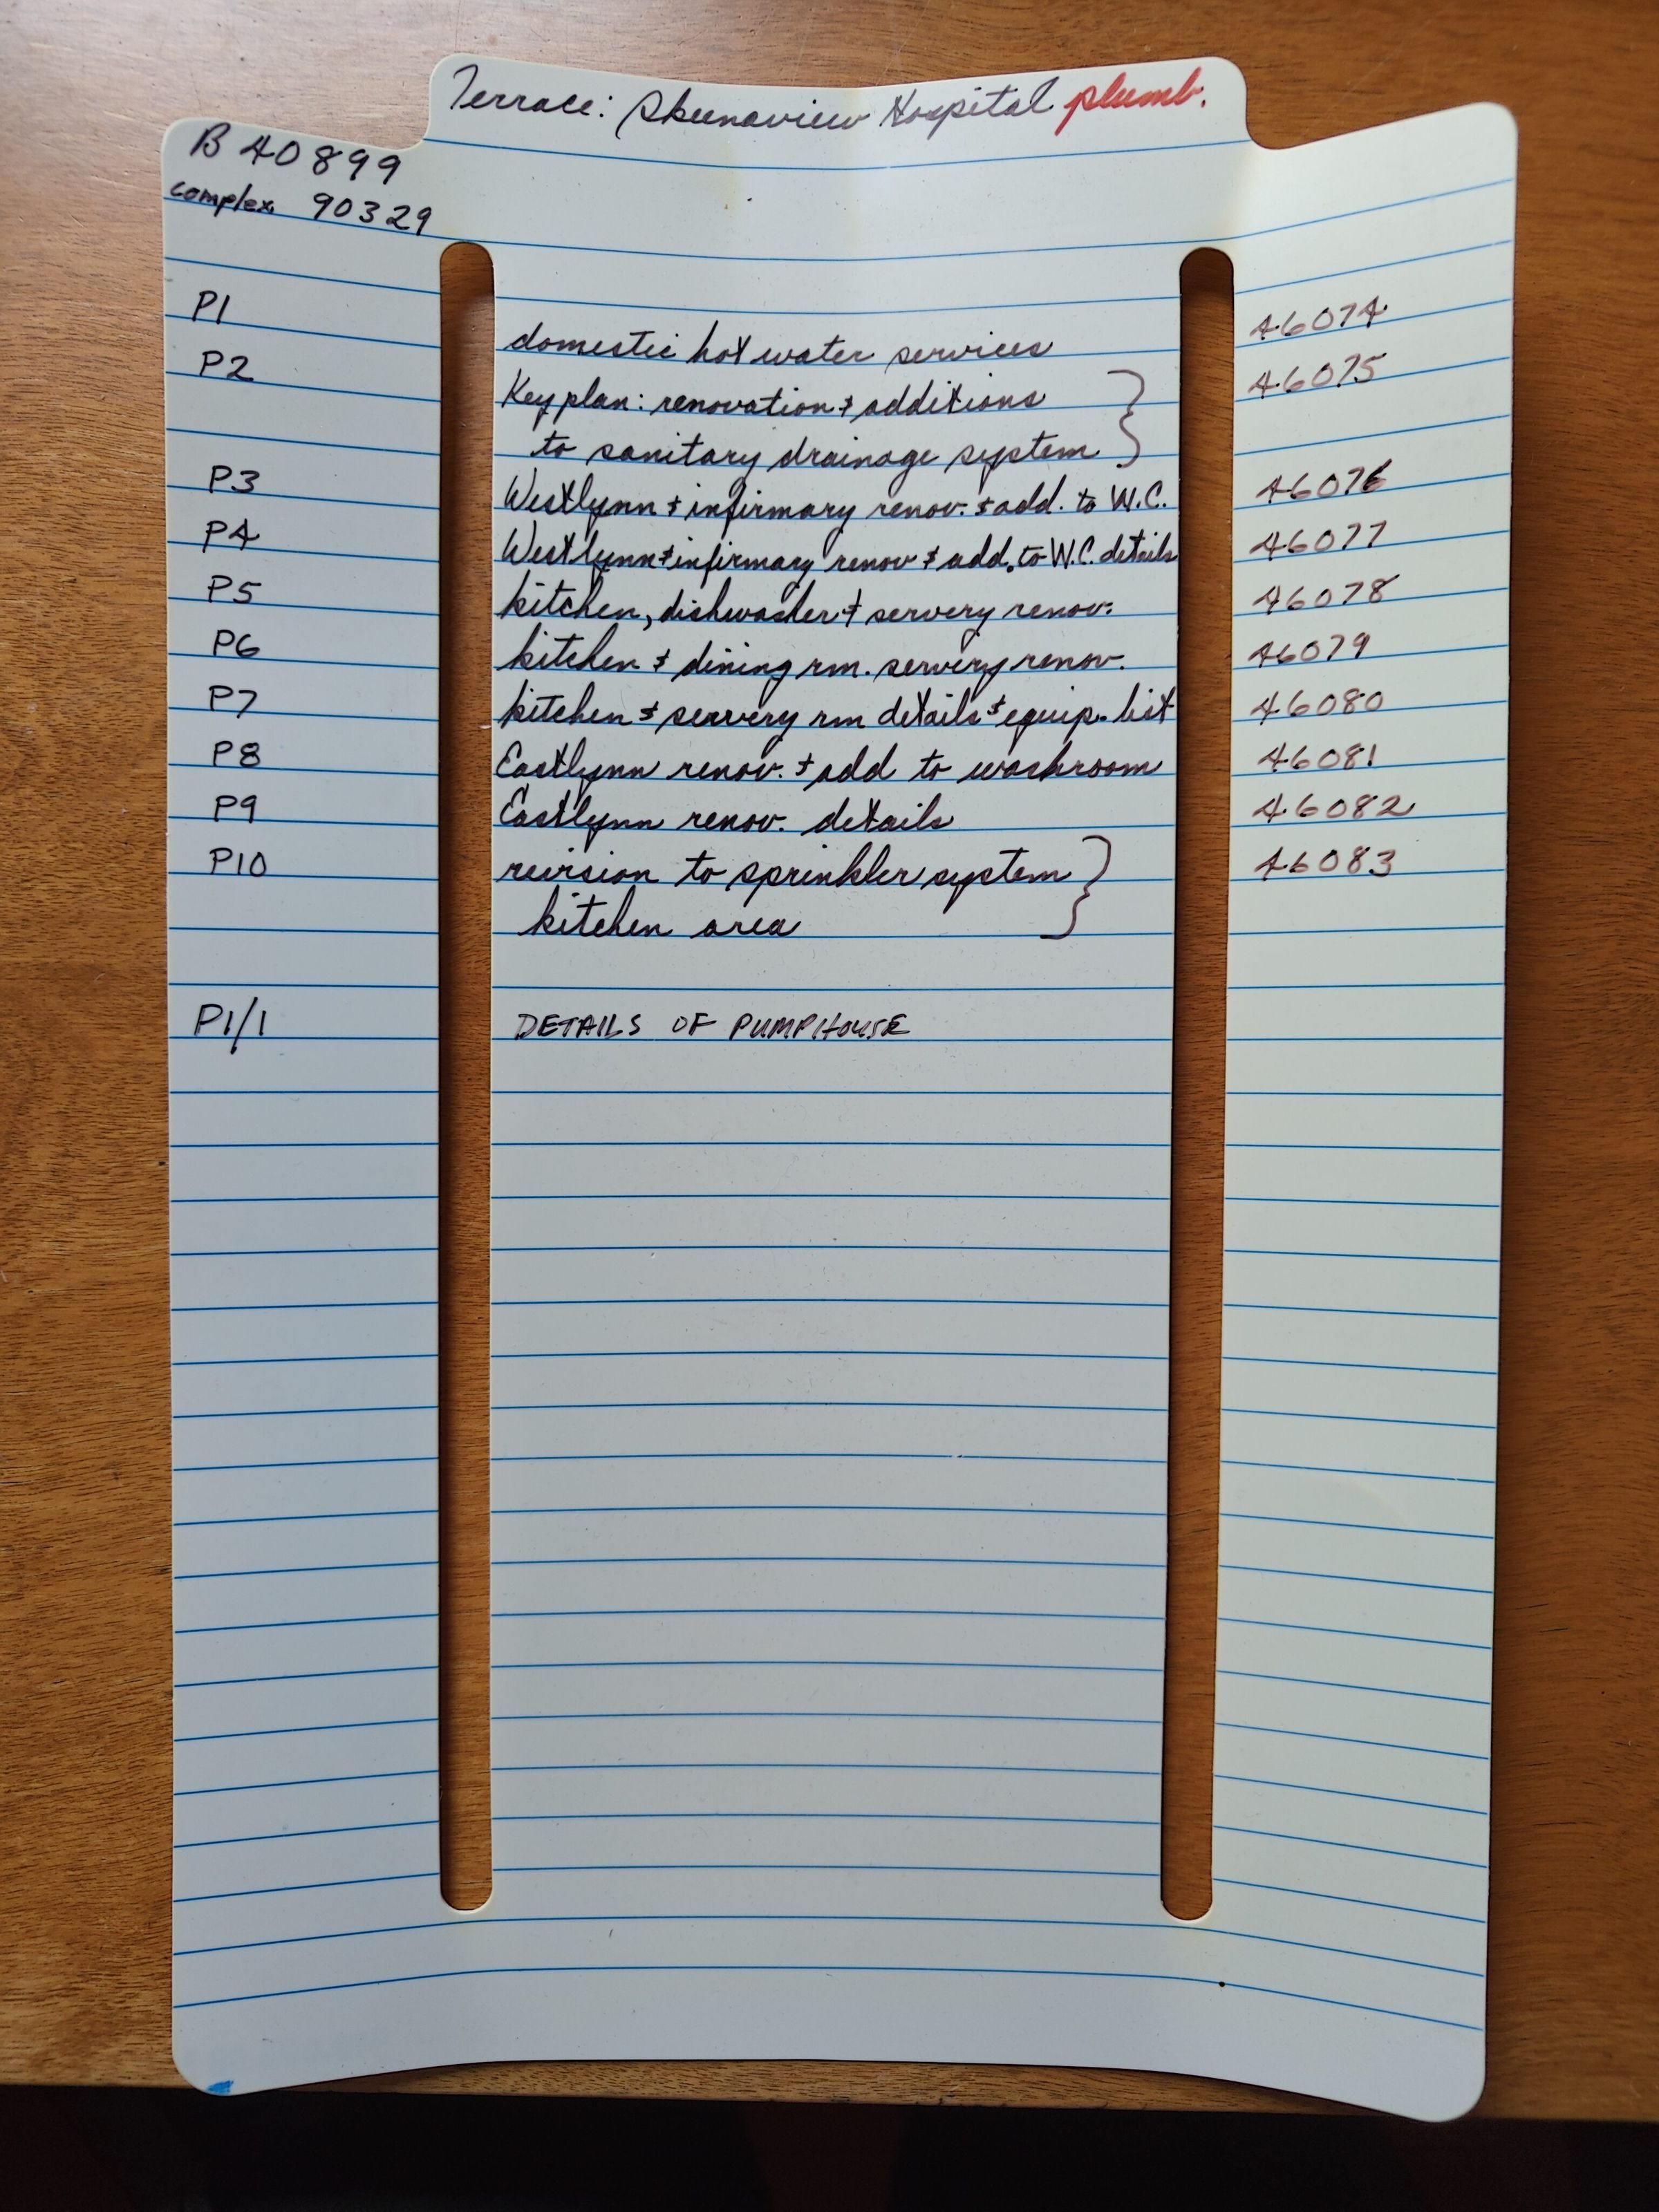 Terrace: Skeenaview Hospital plumb.
B 40899
complex 90329
P1 domestic hot water services 46074
P2 Key plan: renovation & additions 46075
to sanitary drainage system
P3 Westlynn & infirmary renov. & add. to W.C. 46076
P4 Westlynn & infirmary renov & add. to W.C. details 46077
P5 kitchen, dishwasher & servery renov. 46078
P6 kitchen & dining rm. servery renov. 46079
P7 kitchen & servery rm details & equip. list 46080
P8 Eastlynn renov. & add to washroom 46081
P9 Eastlynn renov. details 46082
P10 revision to sprinkler system 46083
kitchen area
P1/1 DETAILS OF PUMPHOUSE